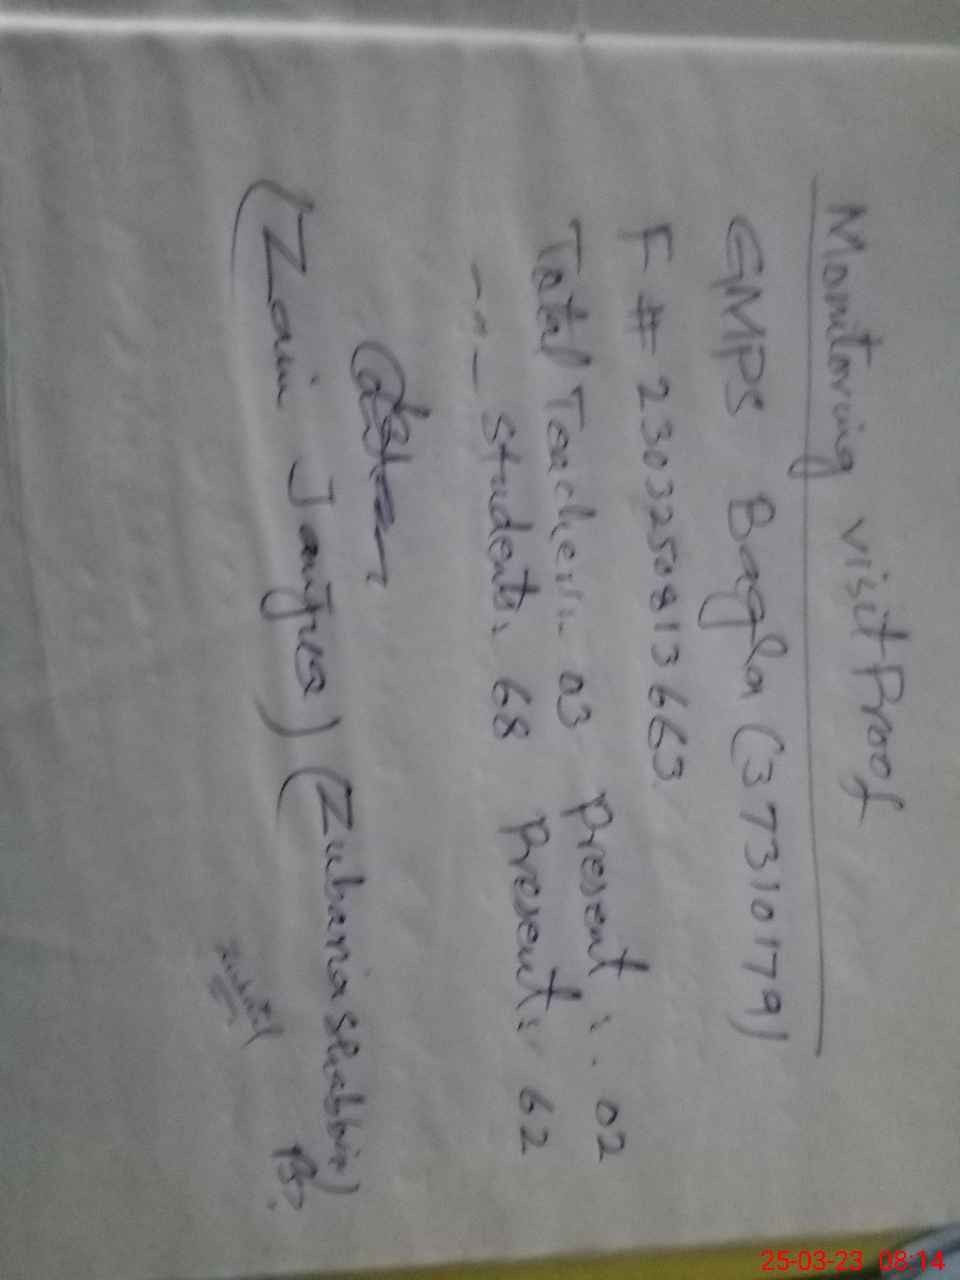 Monitoring visit Proof
GMPS Bagla (37310179)
F # 2303250813663
Total Teachers: 03 Present: 02
-"- Students: 68 Present: 62
(Zain Janjua) (Zuberia Shabbir)
25-03-23 08:14